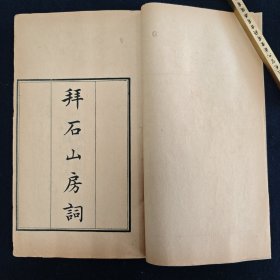 拜石山房詞